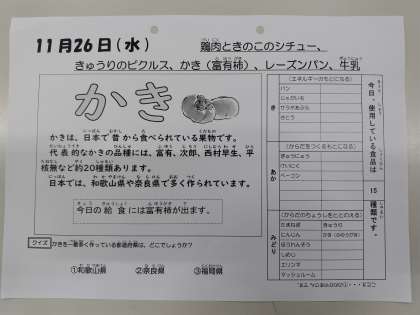 11月26日(水)
鶏肉ときのこのシチュー、
きゅうりのピクルス、かき(富有柿)、レーズンパン、牛乳
かき
かきは、日本で昔から食べられている果物です。
代表的なかきの品種には、富有、次郎、西村早生、平
核無など約20種類あります。
日本では、和歌山県や奈良県で多く作られています。
今日の給食には富有柿が出ます。
クイズ かきを一番多く作っている都道府県は、どこでしょうか?
①和歌山県 ②奈良県 ③福岡県
今日、使用している食品は
15
種類です。
き
(エネルギーのもとになる)
パン
じゃがいも
サラダあぶら
さとう
あか
(からだをつくるもとになる)
ぎゅうにゅう
けいにく
ベーコン
みどり
(からだのちょうしをととのえる)
たまねぎ きゅうり
にんじん かき(ふゆうがき)
ほうれんそう
しめじ
エリンギ
マッシュルーム